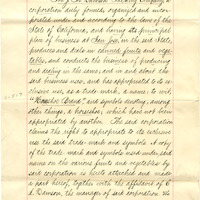 The J. H. Dawson Packing Company, a
corporation duly formed, organized and incor-
porated under and according to the laws of the
State of California, and having its principal
place of business at San Jose, in the said state,
produces and deals in canned fruits and vege-
tables, and conducts the business of producing
and dealing in the same, and in and about the
said business uses, and has appropriated to its ex-
clusive use, as a trade mark, a name, to wit,
"Horseshoe Brand" and symbols consisting, among
other things, a horseshoe, which have not been
appropriated by another. The said corporation
claims the right to appropriate to its exclusive
use the said trade-mark and symbols. A copy
of the trade mark and symbols used under said
name on the various fruits and vegetables by
said corporation is hereto attached and made
a part hereof, together with the affidavit of
Dawson, the manager of said corporation. We